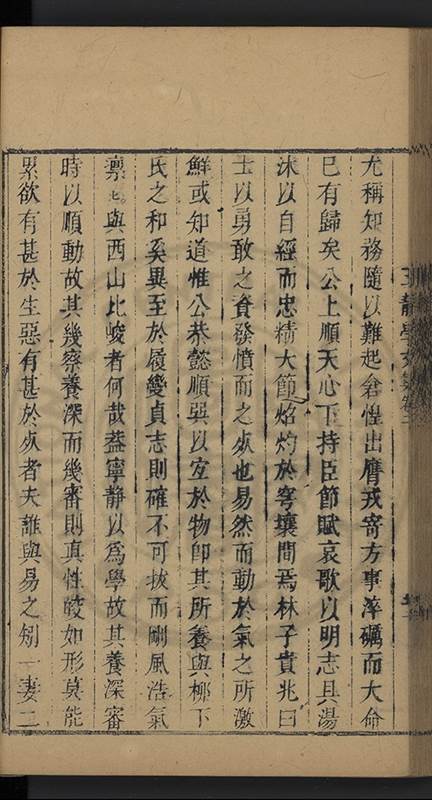 尤稱知務隨以難起倉惶出膺戎寄方事淬礪而大命
已有歸矣公上順天心下持臣節賦哀歌以明志具湯
沐以自經而忠精大節焰灼於穹壤間焉林子貴兆曰
士以勇敢之資發憤而之死也易然而動於氣之所激
鮮或知道惟公恭懿順巽以宜於物即其所養與柳下
氏之和奚異至於履變貞志則確不可拔而剛風浩氣
凛凛與西山比峻者何哉葢寧静以為學故其養深審
時以順動故其幾察養深而幾審則真性皎如形莫能
累欲有甚於生惡有甚於死者夫誰與易之矧一妻二
王静學文集卷二